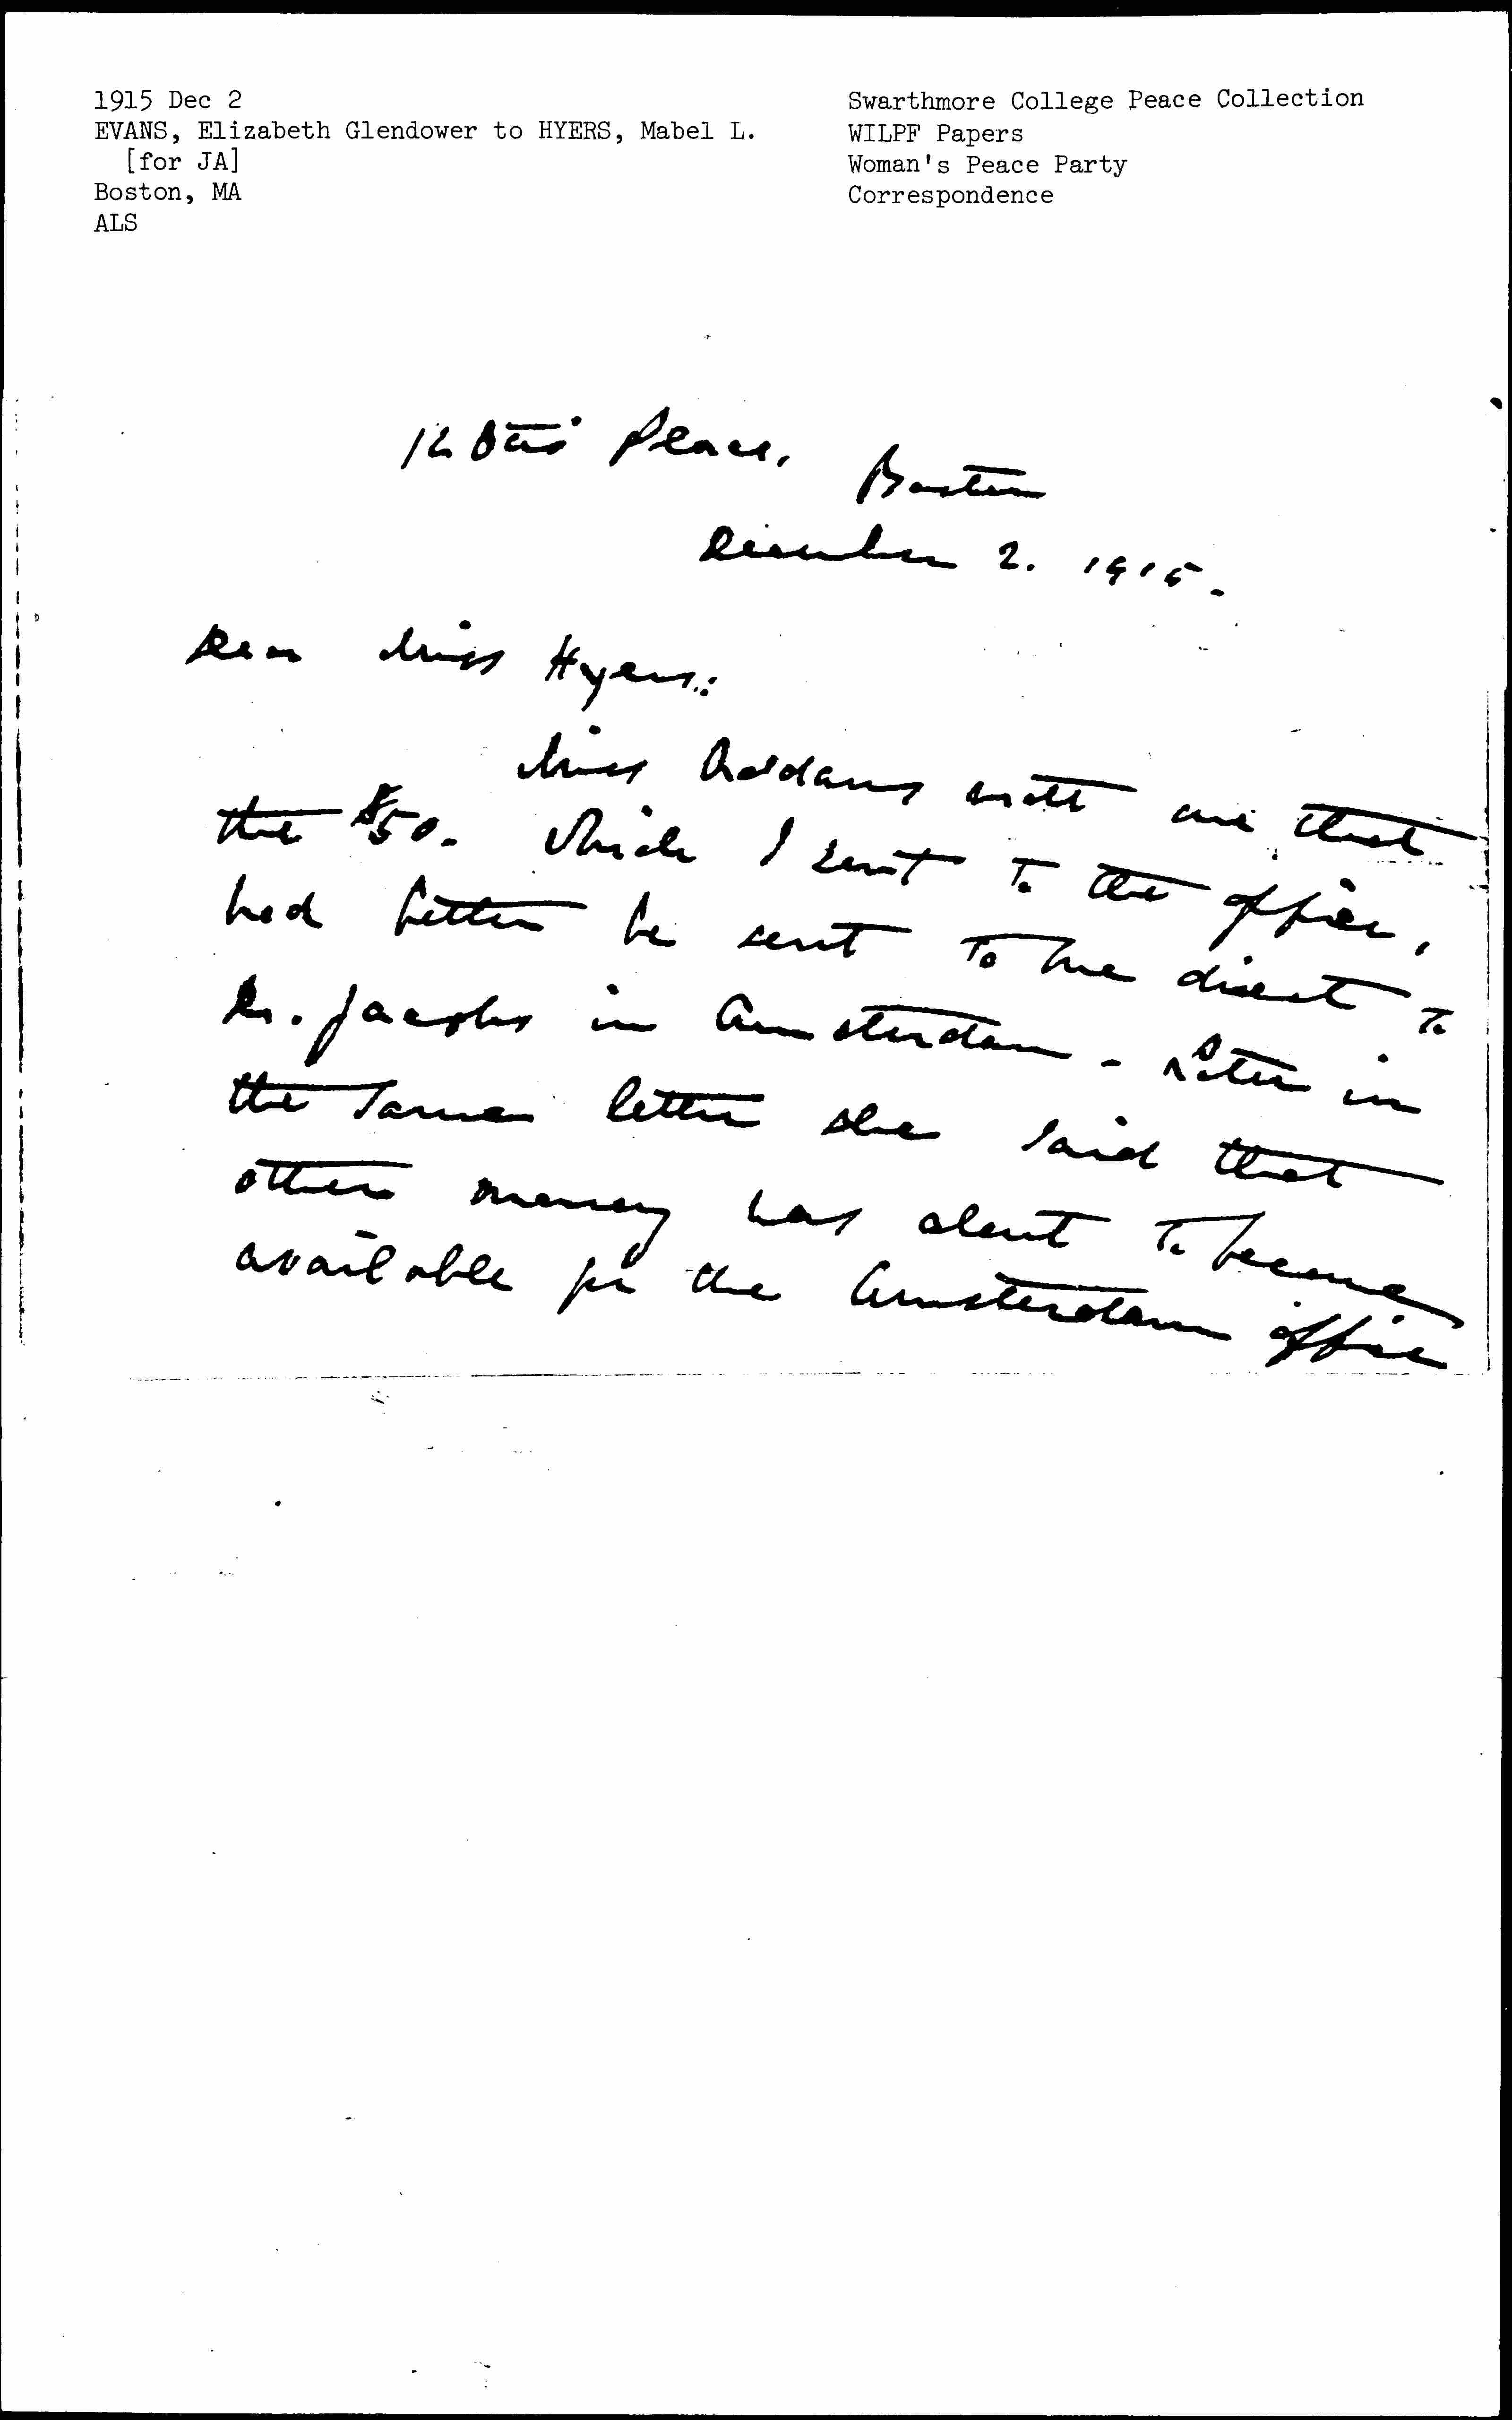 1915 Dec 2
EVANS, Elizabeth Glendower to HYERS, Mabel L.
[for JA]
Boston, MA
ALS
Swarthmore College Peace Collection
WILPF Papers
Woman's Peace Party
Correspondence
12 Otis Place,
Boston
December 2. 1915.
Dear Miss Hyers:
Miss Addams wrote me that
the $50. which I sent to the office,
had better be sent to me direct to
Dr. Jacobs in Amsterdam - Later in
the same letter she said that
other money was about to become
available for the Amsterdam office